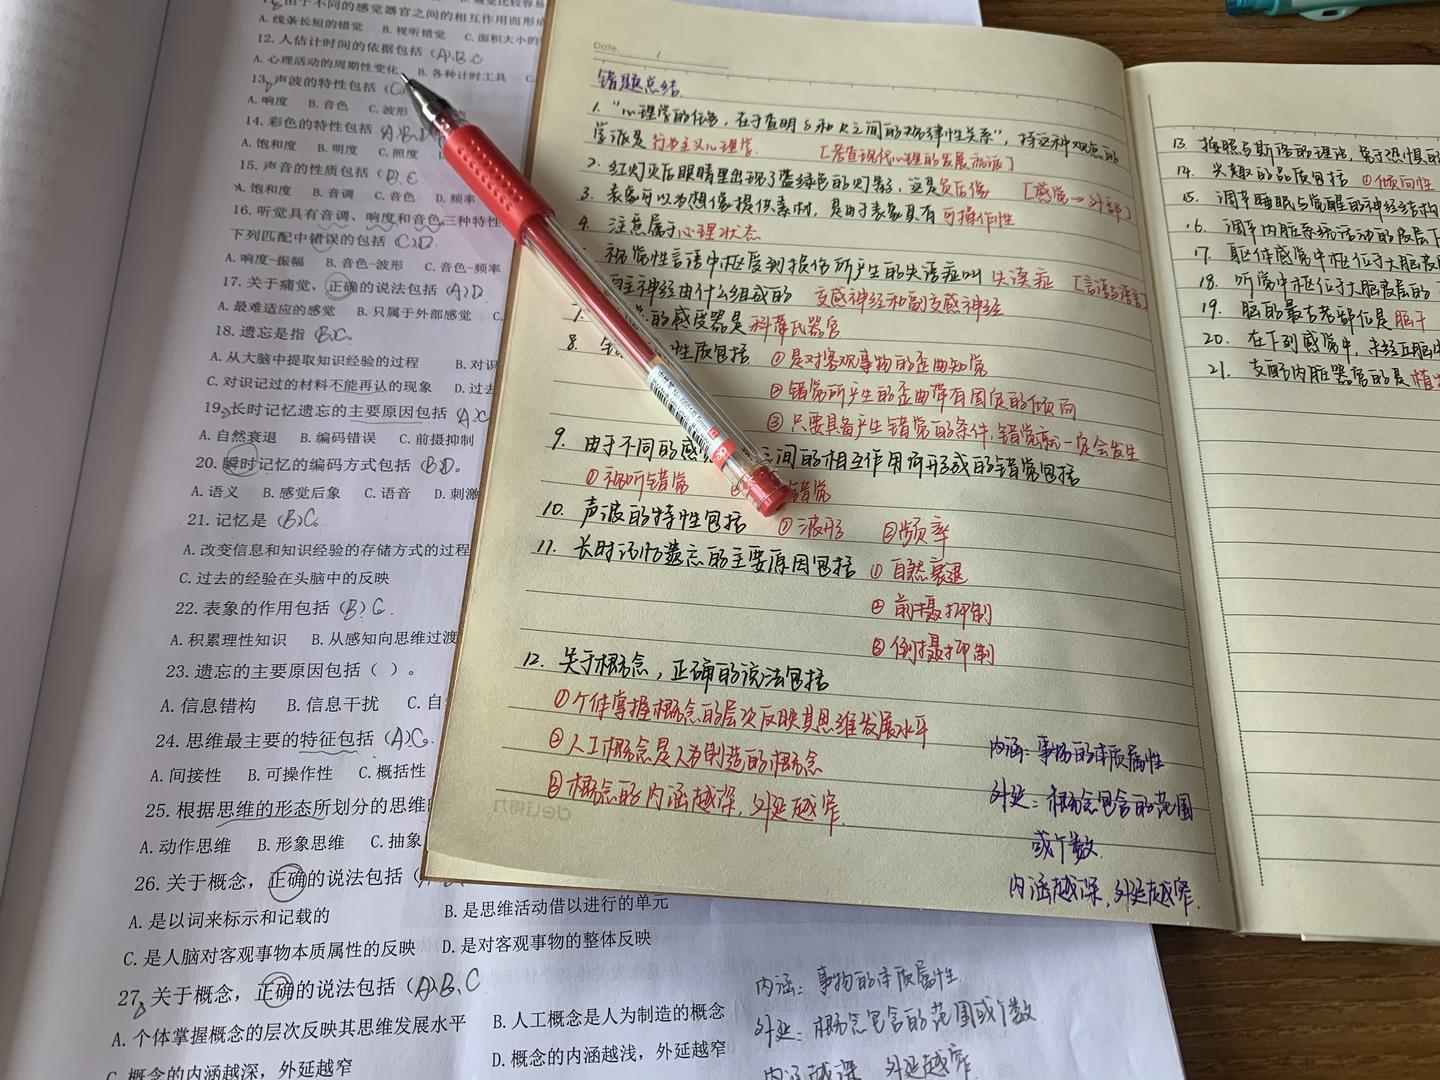 由于不同的感觉器官之间的相互作用而形成
A. 线条长短的错觉 B. 视听错觉 C. 面积大小的
12. 人估计时间的依据包括（A、B、C
A. 心理活动的周期性变化 B. 各种计时工具 C.
13. 声波的特性包括（C
A. 响度 B. 音色 C. 波形
14. 彩色的特性包括
A. 饱和度 B. 明度 C. 照度
15. 声音的性质包括（B、C
A. 饱和度 B. 音调 C. 音色 D. 频率
16. 听觉具有音调、响度和音色三种特性
下列匹配中错误的包括（C）D.
A. 响度-振幅 B. 音色-波形 C. 音色-频率
17. 关于痛觉，正确的说法包括（A）D.
A. 最难适应的感觉 B. 只属于外部感觉 C.
18. 遗忘是指 B、C。
A. 从大脑中提取知识经验的过程 B. 对识
C. 对识记过的材料不能再认的现象 D. 过去
19. 长时记忆遗忘的主要原因包括
A. 自然衰退 B. 编码错误 C. 前摄抑制
20. 瞬时记忆的编码方式包括（B）D。
A. 语义 B. 感觉后象 C. 语音 D. 刺激
21. 记忆是（B）C。
A. 改变信息和知识经验的存储方式的过程
C. 过去的经验在头脑中的反映
22. 表象的作用包括（B）C.
A. 积累理性知识 B. 从感知向思维过渡
23. 遗忘的主要原因包括（ ）。
A. 信息错构 B. 信息干扰 C. 自
24. 思维最主要的特征包括（A）C.
A. 间接性 B. 可操作性 C. 概括性
25. 根据思维的形态所划分的思维
A. 动作思维 B. 形象思维 C. 抽象
26. 关于概念，正确的说法包括（
A. 是以词来标示和记载的 B. 是思维活动借以进行的单元
C. 是人脑对客观事物本质属性的反映 D. 是对客观事物的整体反映
27. 关于概念，正确的说法包括（A）B、C
A. 个体掌握概念的层次反映其思维发展水平 B. 人工概念是人为制造的概念
C. 概念的内涵越深，外延越窄 D. 概念的内涵越浅，外延越窄
内涵：事物的本质属性.
外延：概念包含的范围或个数
内涵越深，外延越窄.
Date.
错题总结
1. “心理学的任务，在于查明S和R之间的规律性关系”，持这种观点的
学派是 行为主义心理学. [考查现代心理的发展流派]
2. 红灯灭后眼睛里出现了蓝绿色的灯影，这是负后像 [感觉→外部]
3. 表象可以为想像提供素材，是由于表象具有 可操作性
4. 注意属于心理状态
视觉性言语中枢受到损伤所产生的失语症叫 失读症 [言语与语言]
自主神经由什么组成的 交感神经和副交感神经
的感受器是 科蒂氏器官
8. 性质包括 ①是对客观事物的歪曲知觉
②错觉所产生的歪曲带有固定的倾向
③只要具备产生错觉的条件，错觉就一定会发生
9. 由于不同的感 之间的相互作用而形成的错觉包括
①视听错觉 错觉
10. 声波的特性包括 ①波形 ②频率
11. 长时记忆遗忘的主要原因包括 ①自然衰退
②前摄抑制
③倒摄抑制
12. 关于概念，正确的说法包括
①个体掌握概念的层次反映其思维发展水平
②人工概念是人为制造的概念
③概念的内涵越深，外延越窄.
内涵：事物的本质属性
外延：概念包含的范围
或个数.
内涵越深，外延越窄.
13. 按照马斯洛的理论，属于恐惧的
14. 兴趣的品质包括 ①倾向性
15. 调节睡眠与觉醒的神经结构
16. 调节内脏系统活动的皮层下
17. 躯体感觉中枢位于大脑皮层
18. 听觉中枢位于大脑皮层的
19. 脑的最古老部位是 脑干
20. 在下列感觉中，未经丘脑
21. 支配内脏器官的是 植
deli得力